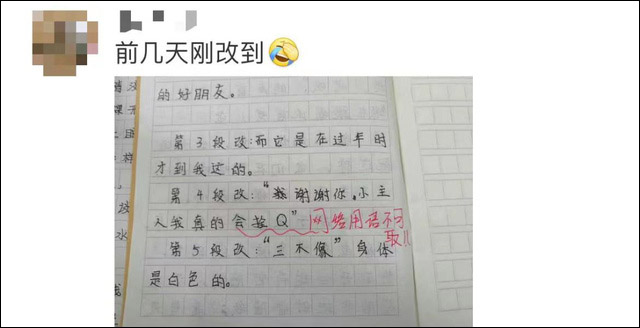 前几天刚改到🤣
的好朋友。
第3段改:而它是在过年时
才到我这的。
第4段改:“我谢谢你,小主
人我真的会拴Q”网络用语不可
取!!
第5段改:“三不像”身体
是白色的。